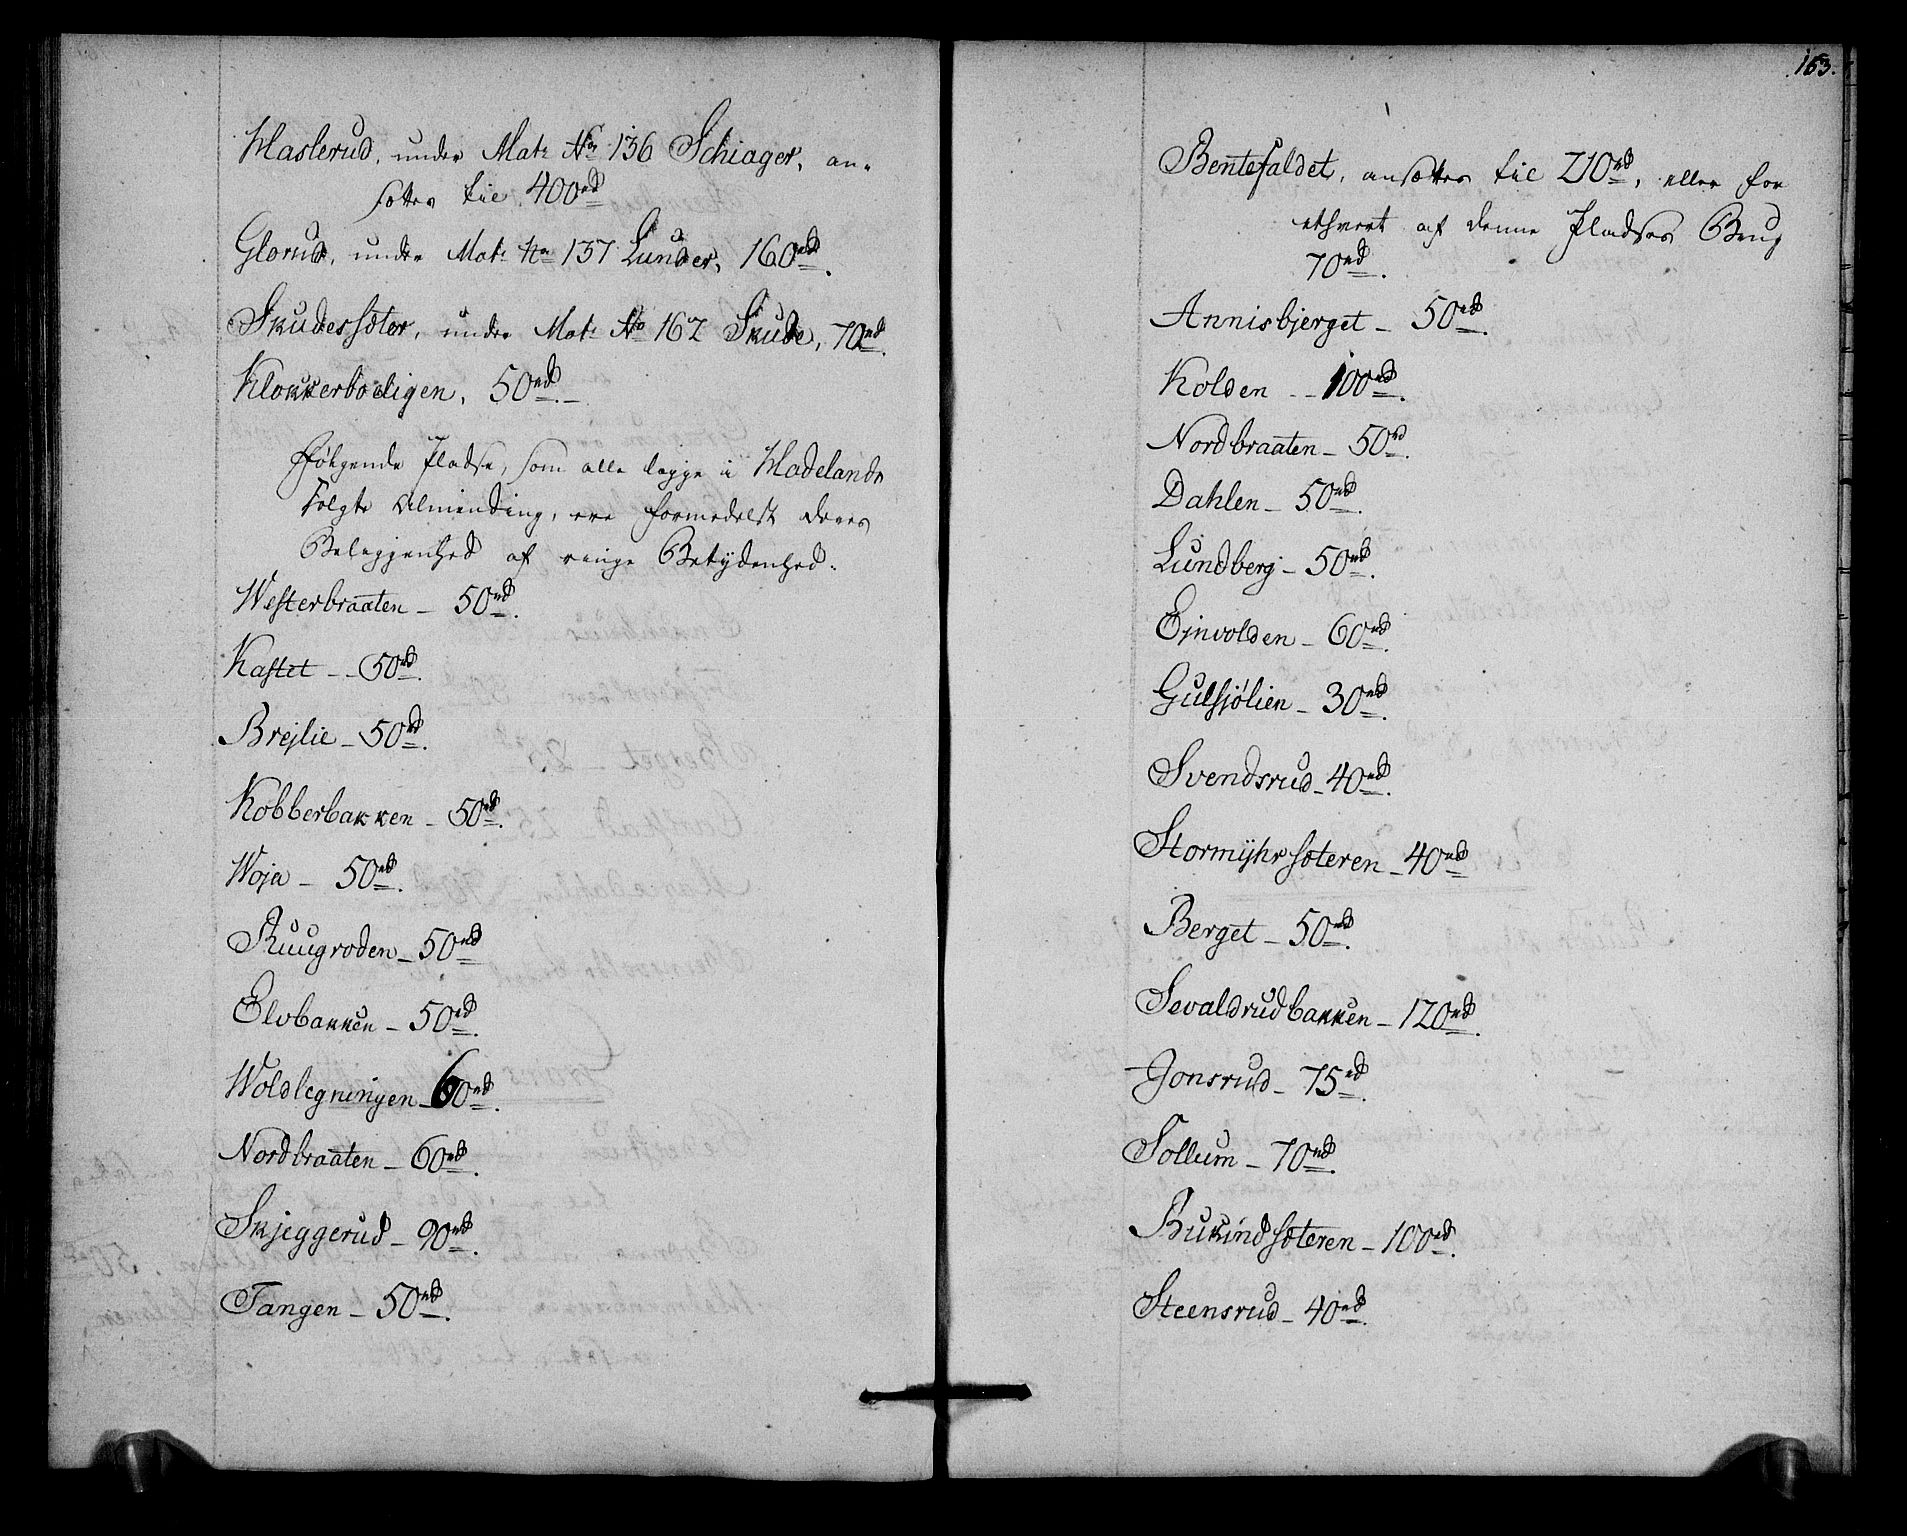 Haslerud, under Mat: No 136 Schiager, an-
sættes til 400rd
Glorud, under Mat: No 137 Lunder, 160rd.
Skudessæter, under Mat: No 162 Skude, 70rd.
Klokkerboeligen, 50rd.-
Følgende Pladse, som alle ligge i Hadelands
Solgte Alminding, ere formedelst deres
Beliggenhed af ringe Betydenhed.
Westerbraaten - 50rd.
Kastet - - 50rd.
Brejlie - 50rd.
Kobberbakken - 50rd.
Woja - 50rd.
Ruugroden - 50rd
Elvbakken - 50rd.
Woldlegningen - 60rd.
Nordbraaten - 60rd.
Skjeggerud - 90rd.
Tangen - 50rd.
163.
Bentefaldet, ansættes til 210rd, eller for
ethvert af denne Pladses Brug
70rd.
Annisbjerget - 50rd.
Kolden - - 100rd.
Nordbraaten - 50rd.
Dahlen - 50rd.
Lundberg - 50rd.
Ejnvolden - 60rd.
Gulsjølien - 30rd.
Svendsrud - 40rd.
Stormyhrsæteren - 40rd
Berget - 50rd.
Sevaldrudbakken - 120rd.
Jonsrud - 75rd.
Sollum - 70rd.
Bukindsæteren - 100rd.
Steensrud - 40rd.